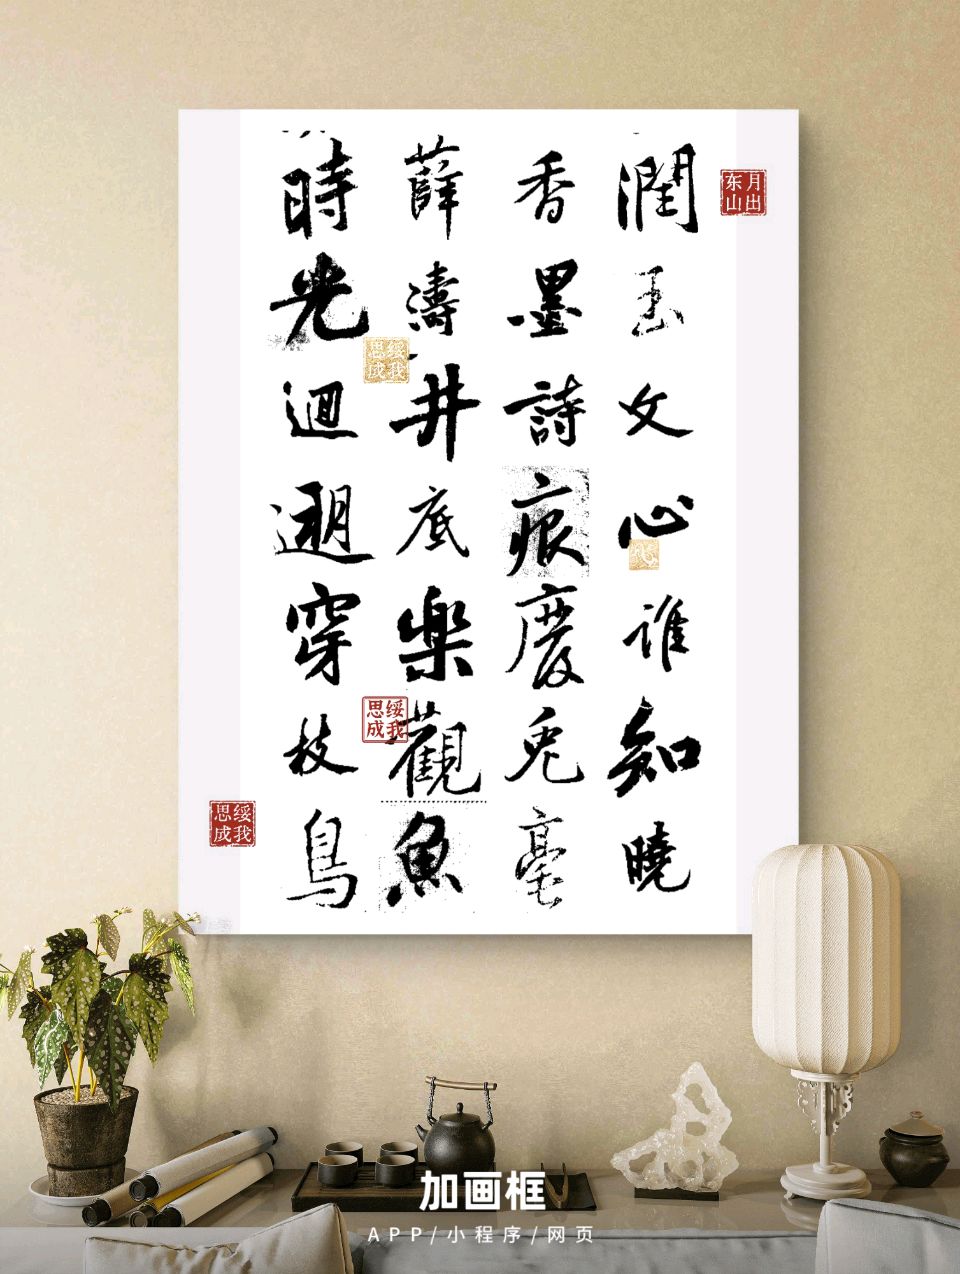 潤玉文心誰知曉
香墨詩痕慶兔毫
薛濤井底樂觀魚
時光迴遡穿枝鳥
月出东山
绥我思成
绥我思成
绥我思成
加画框
APP/小程序/网页